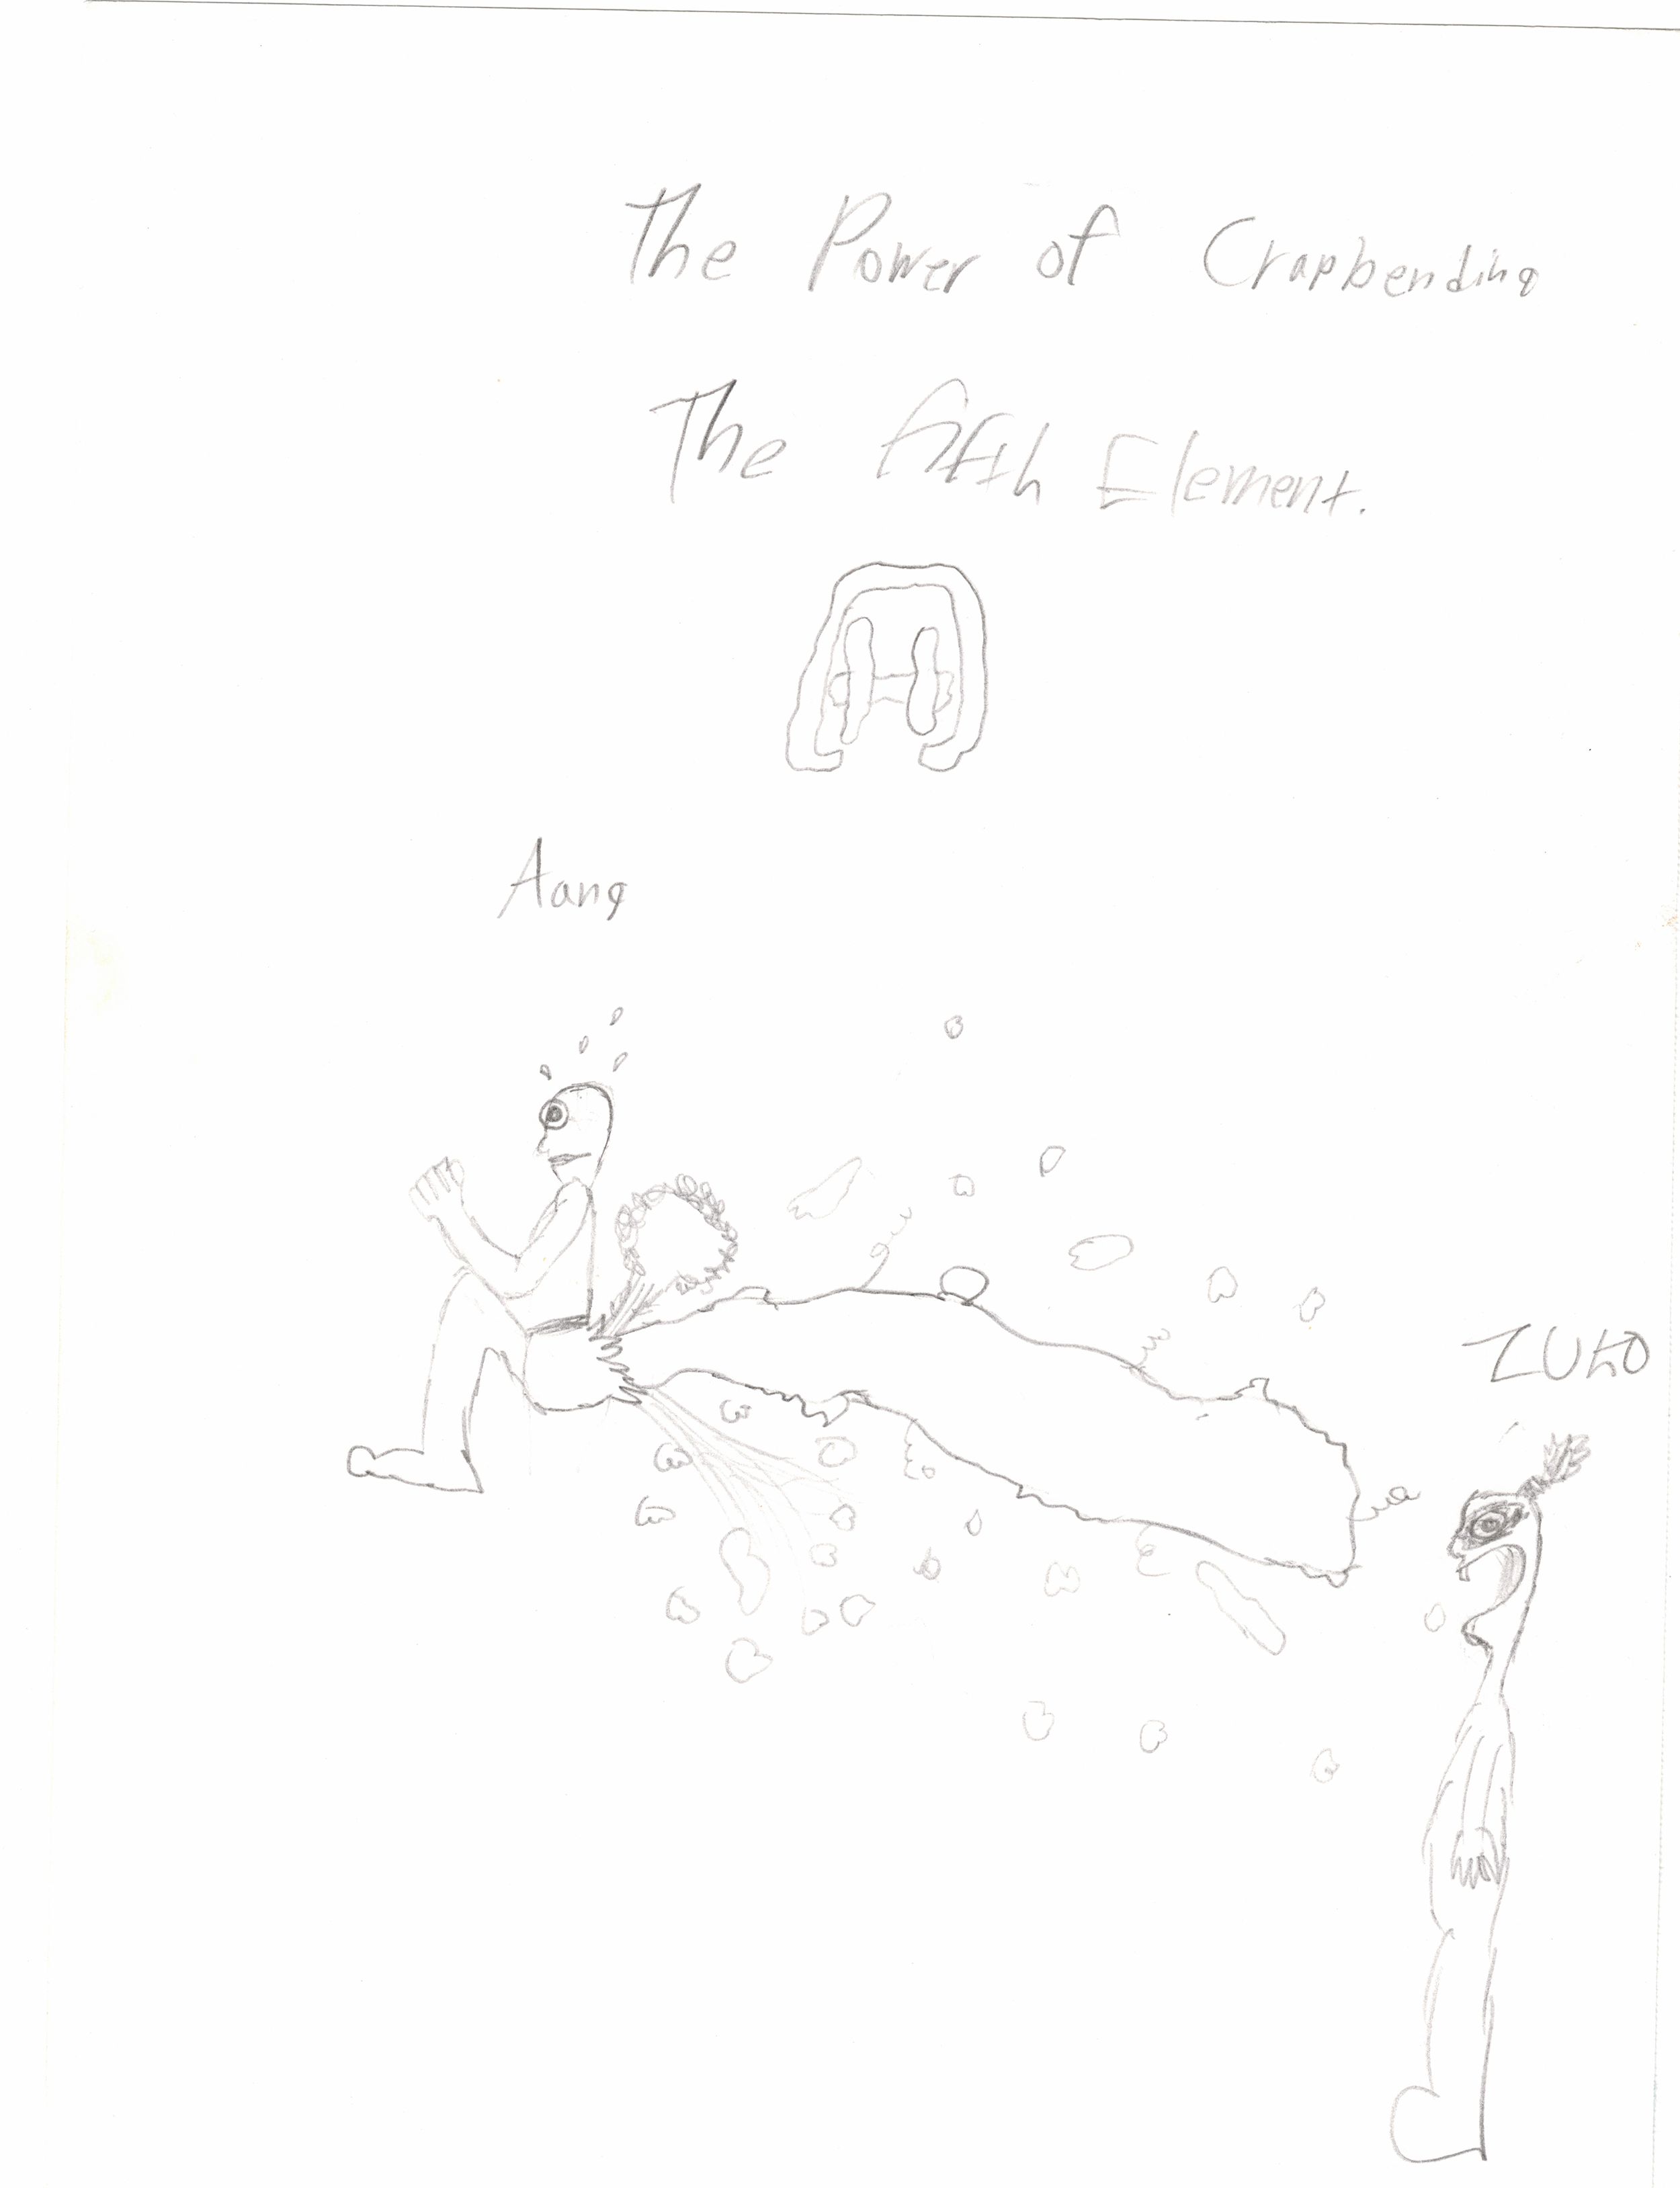 The Power of Crapbending
The fifth Element.
Aang
ZUKO